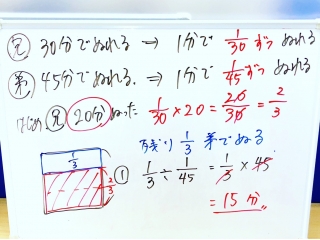 兄 30分でぬれる → 1分で 1/30 ずつ ぬれる
弟 45分でぬれる. → 1分で 1/45 ずつ ぬれる
兄 20分 ぬった 1/30 × 20 = 20/30 = 2/3
残り 1/3 弟でぬる
1/3
2/3
① 1/3 ÷ 1/45 = 1/3 × 45
= 15分